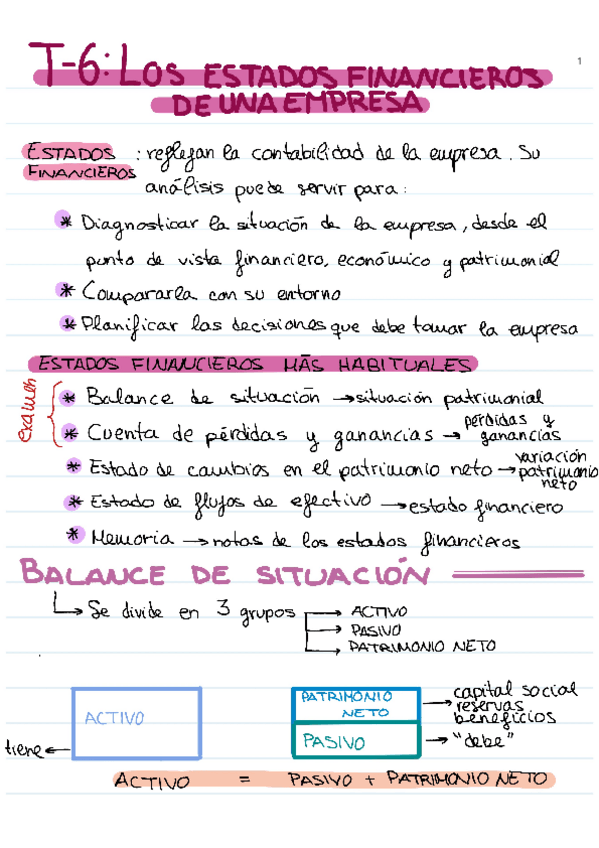 1
T-6: LOS ESTADOS FINANCIEROS
DE UNA EMPRESA
ESTADOS FINANCIEROS : reflejan la contabilidad de la empresa. Su
análisis puede servir para:
* Diagnosticar la situación de la empresa, desde el
punto de vista financiero, económico y patrimonial
* Compararla con su entorno
* Planificar las decisiones que debe tomar la empresa
ESTADOS FINANCIEROS MÁS HABITUALES
examen
* Balance de situación → situación patrimonial
* Cuenta de pérdidas y ganancias → pérdidas y ganancias
* Estado de cambios en el patrimonio neto → variación patrimonio neto
* Estado de flujos de efectivo → estado financiero
* Memoria → notas de los estados financieros
BALANCE DE SITUACIÓN
↳ Se divide en 3 grupos → ACTIVO
→ PASIVO
→ PATRIMONIO NETO
ACTIVO
tiene ←
PATRIMONIO NETO → capital social
reservas
beneficios
PASIVO → "debe"
ACTIVO = PASIVO + PATRIMONIO NETO